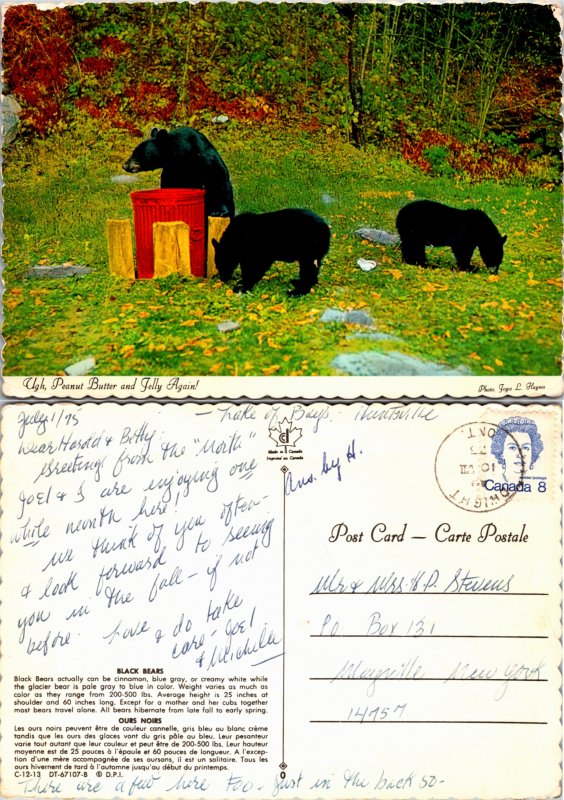 Ugh, Peanut Butter and Jelly Again!
Photo: Joyce L. Haynes
July 1/75 - Lake of Bays - Huntsville
Dear Harold & Betty
Greetings from the "North"
Joel & I are enjoying one
whole month here!
We think of you often
& look forward to seeing
you in the fall - if not
before. Love & do take
care - Joel
& Michelle
BLACK BEARS
Black Bears actually can be cinnamon, blue gray, or creamy white while
the glacier bear is pale gray to blue in color. Weight varies as much as
color as they range from 200-500 lbs. Average height is 25 inches at
shoulder and 60 inches long. Except for a mother and her cubs together
most bears travel alone. All bears hibernate from late fall to early spring.
OURS NOIRS
Les ours noirs peuvent être de couleur cannelle, gris bleu ou blanc crème
tandis que les ours des glaces vont du gris pâle au bleu. Leur pesanteur
varie tout autant que leur couleur et peut être de 200-500 lbs. Leur hauteur
moyenne est de 25 pouces à l'épaule et 60 pouces de longueur. A l'excep-
tion d'une mère accompagnée de ses oursons, il est un solitaire. Tous les
ours hivernent de tard à l'automne jusqu'au début du printemps.
C-12-13 DT-67107-B © D.P.I.
There are a few here too - Just in the back so-
Made in Canada
Imprimé au Canada
Ans. by H.
DWIGHT
ONT.
10 VII
75
Canada 8
Post Card — Carte Postale
Mr & Mrs H.P. Stevens
PO Box 131
Mayville New York
14757